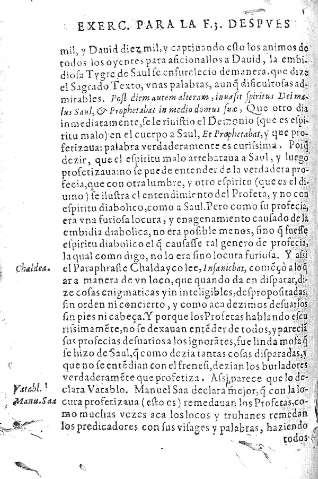 EXERC. PARA LA F.3. DESPVES
mil, y Dauid diez mil, y captiuando esto los animos de
todos los oyentes para aficionallos a Dauid, la embi-
diosa Tygre de Saul se enfurecio demanera, que dize
el Sagrado Texto, vnas palabras, aunq̃ dificultosas ad-
mirables. Post diem autem alteram, inuasit spiritus Dei ma-
lus Saul, & Prophetabat in medio domus suæ. Que otro dia
inmediatamente, se le riuistio el Demonio (que es espi
ritu malo) en el cuerpo a Saul, Et Prophetabat, y que pro-
fetizaua: palabra verdaderamente es curissima. Porq̃
dezir, que el espiritu malo arrebataua a Saul, y luego
profetizaua: no se puede entender de la verdadera pro-
fecia, que con otra lumbre, y otro espiritu (que es el di-
uino) se ilustra el entendimiento del Profeta, y no con
espiritu diabolico, como a Saul. Pero como su profecia,
era vna furiosa locura, y enagenamiento causado de la
embidia diabolica, no era posible menos, sino q̃ fuesse
espiritu diabolico el q̃ causasse tal genero de profecia,
la qual como digo, no lo era sino locura furiosa. Y assi
Chaldea.
el Paraphraste Chaldayco lee, Insaniebat, començò a lo q̃
ara a manera de vn loco, que quando da en disparar, di-
ze cosas enigmaticas y in teligibles, despropositadas
sin orden ni concierto, y como aca dezimos desuarios
sin pies ni cabeça. Y porque los Profetas hablando escu
rissimamẽte, no se dexauan entẽder de todos, y parecia
sus profecias desuarios a los ignorãtes, fue linda mofa q̃
se hizo de Saul, q̃ como dezia tantas cosas disparadas, y
que no se entẽdian con el frenesi, dezian los burladores
verdaderamẽte que profetiza. Assi, parece que lo de-
Vatabl.
clara Vatablo. Manuel Saa declara mejor, q̃ con la lo-
Manu. Saa
cura profetizaua (esto es) remedauan los Profetas, co-
mo muchas vezes aca los locos y truhanes remedan
los predicadores con sus visages y palabras, haziendo
todos